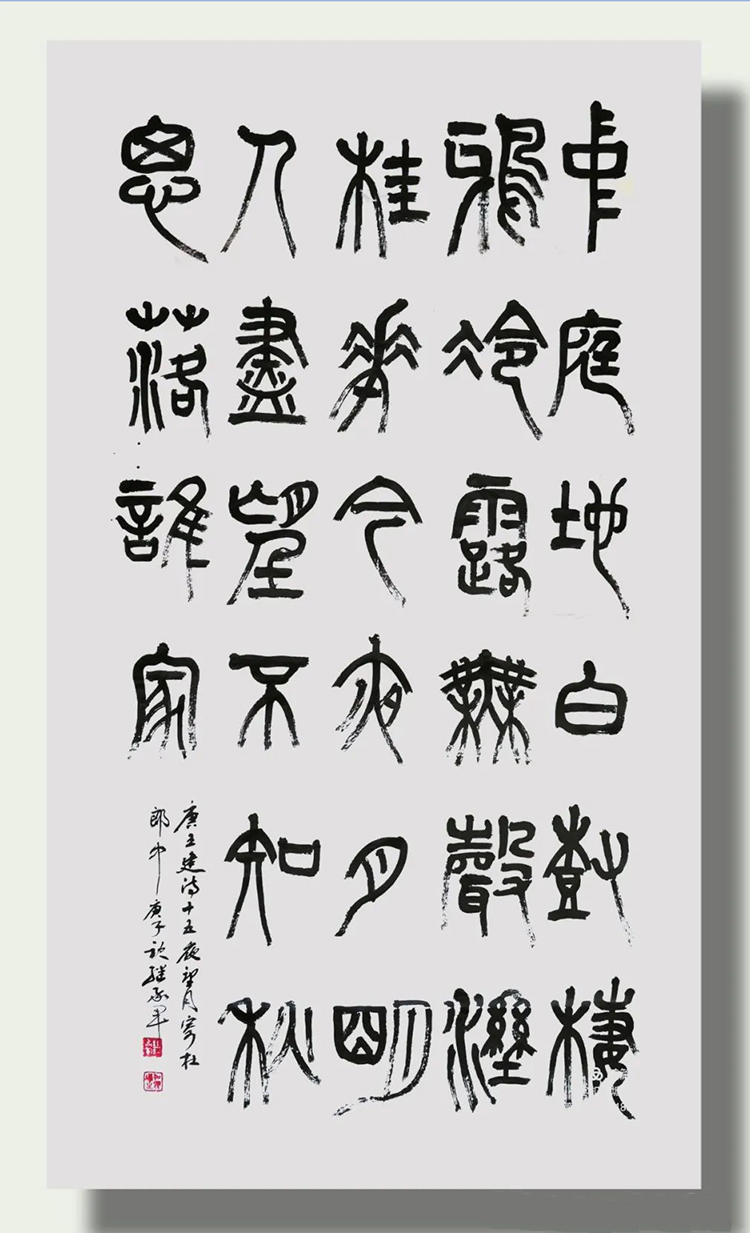 中庭地白樹棲
鴉冷露無聲濕
桂花今夜月明
人盡望不知秋
思落誰家
唐王建诗十五夜望月寄杜
郎中 庚子秋